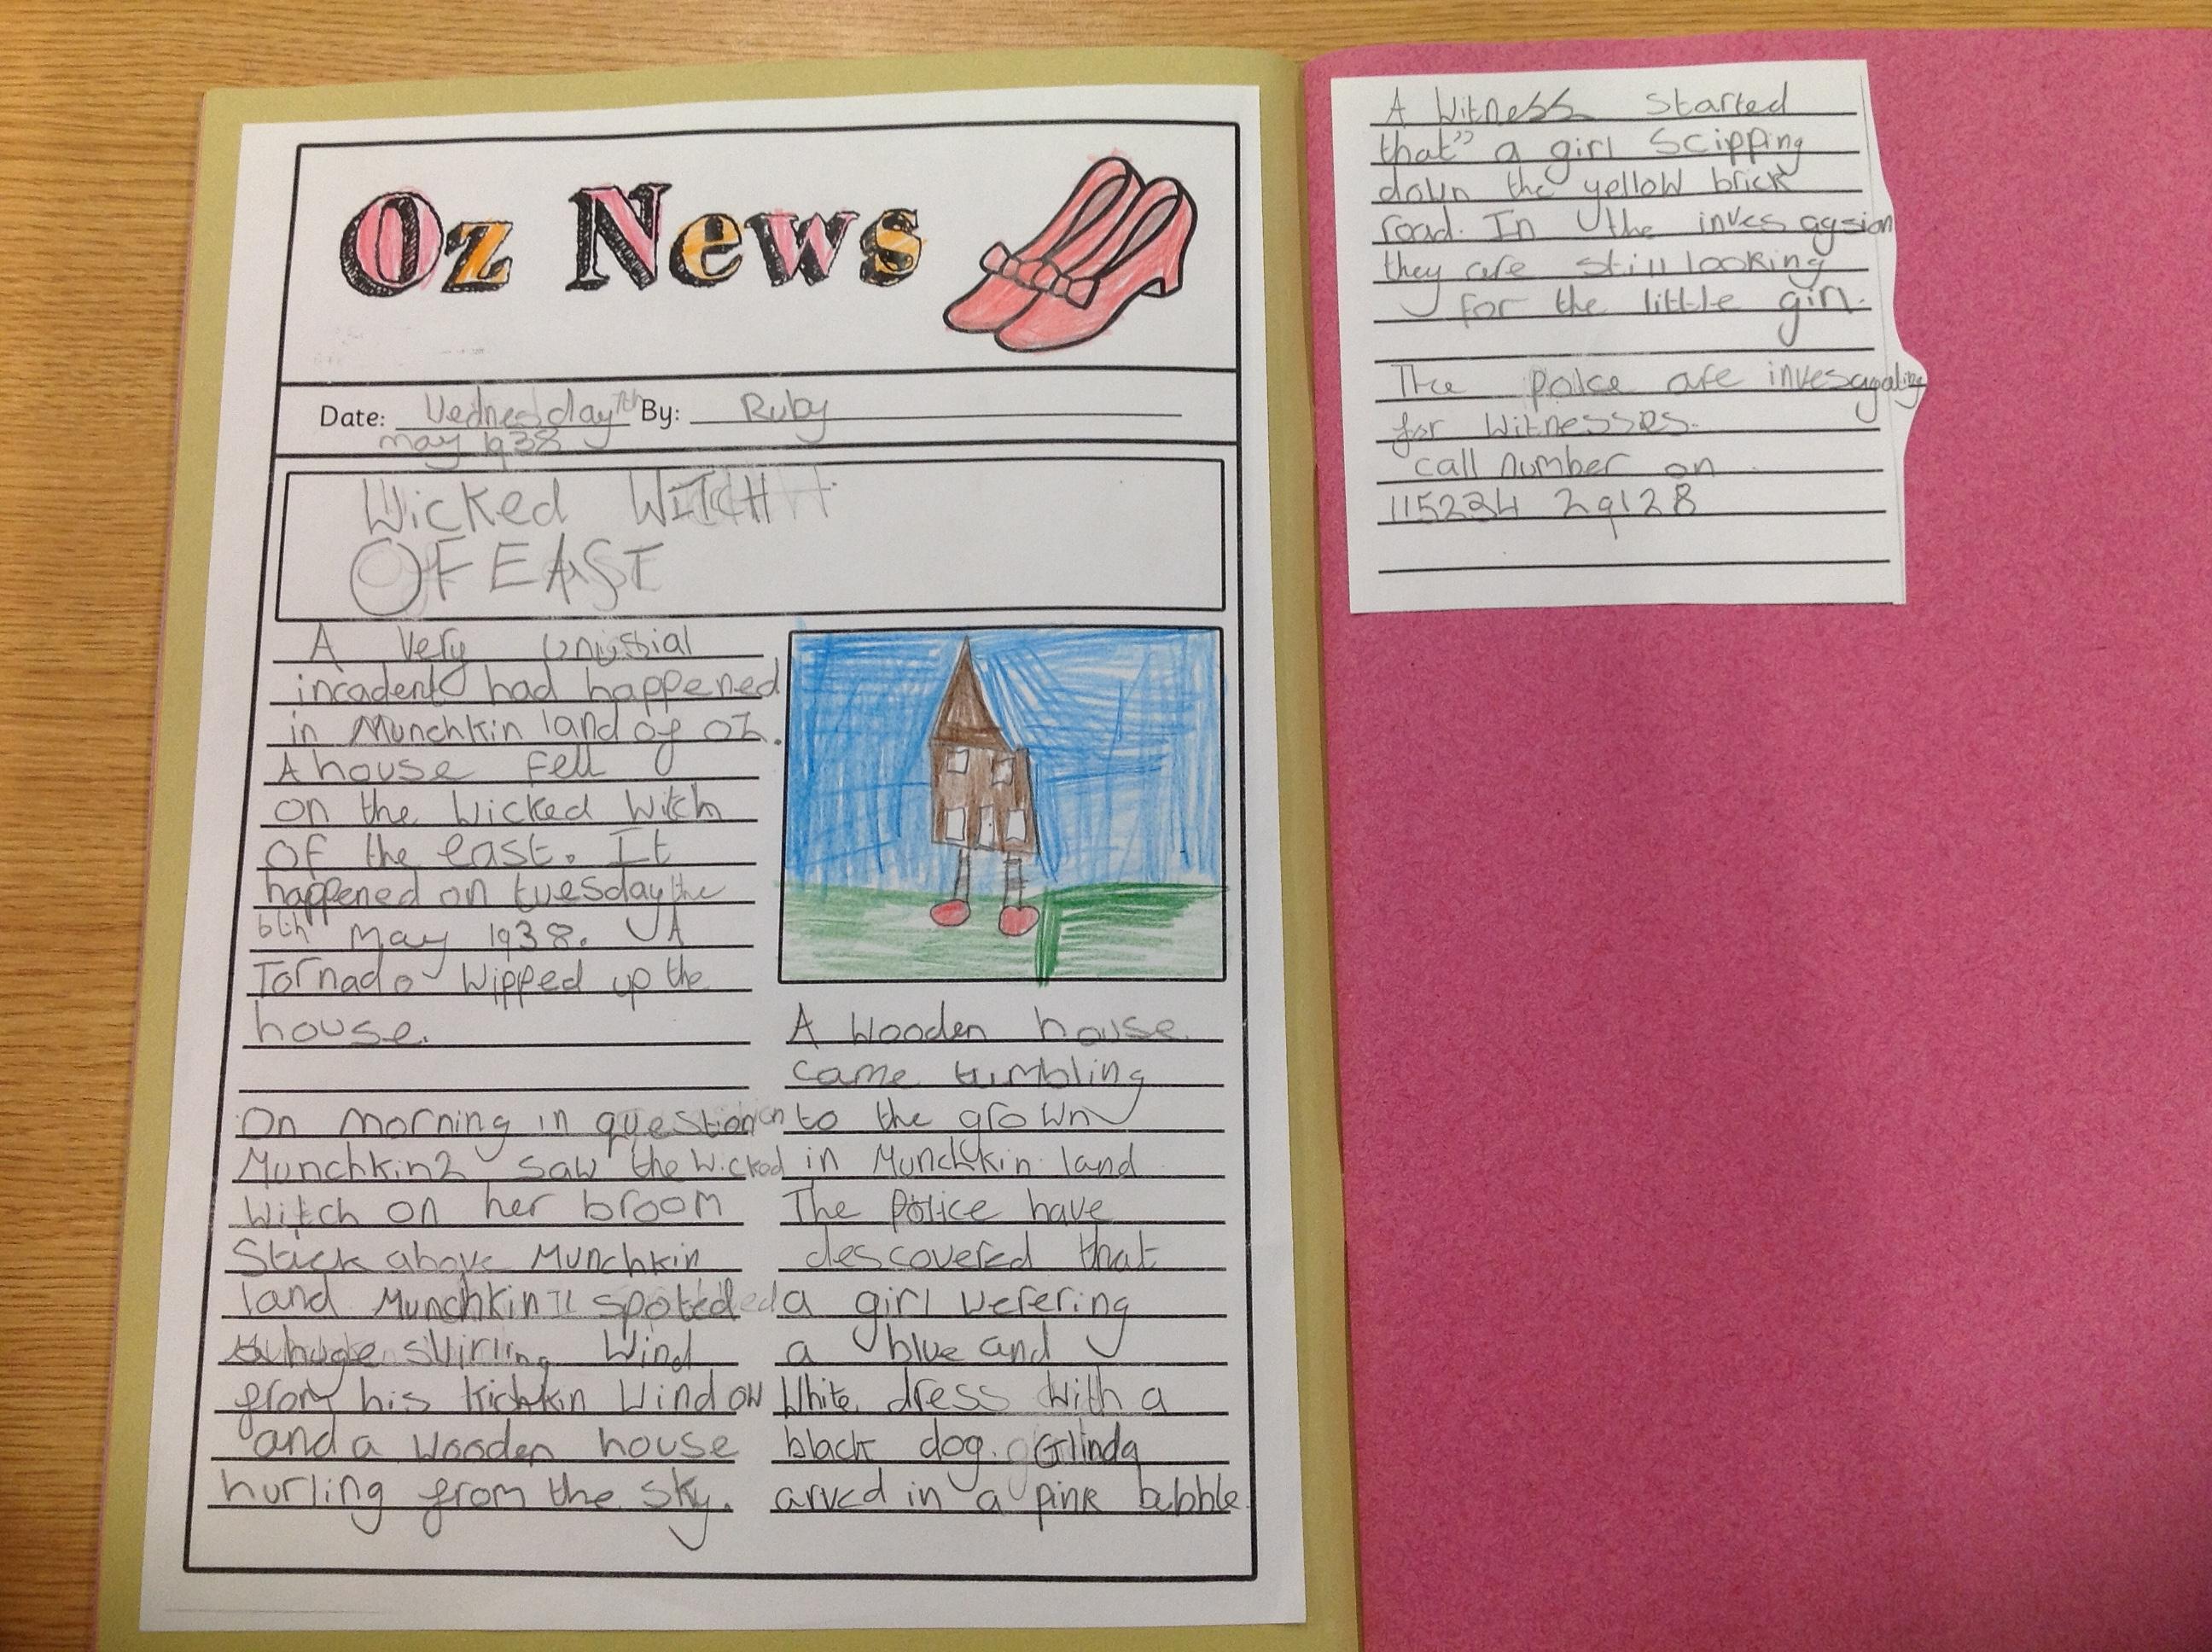 Oz News
Date: Wednesday 7th By: Ruby
may 1938
Wicked WITCH
OF EAST
A very unusial
incadent had happened
in Munchkin land of oz.
A house fell
on the Wicked Witch
of the east. It
happened on tuesday the
6th may 1938. A
Tornado Wipped up the
house.
On morning in question
Munchkin2 saw the wicked
Witch on her broom
Stick above Munchkin
land Munchkin II spoted
a huge swirling Wind
from his Kichkin Window
and a wooden house
hurling from the sky.
A wooden house
came tumbling
to the grown
in Munchkin land
The Police have
descovered that
a girl werering
a blue and
White dress with a
black dog. Glinda
arved in a pink bubble.
A Witness started
that" a girl Scipping
down the yellow brick
road. In the invesagsion
they are still looking
for the little girl.
The police are invesagating
for witnesses.
call number on
115234 29128